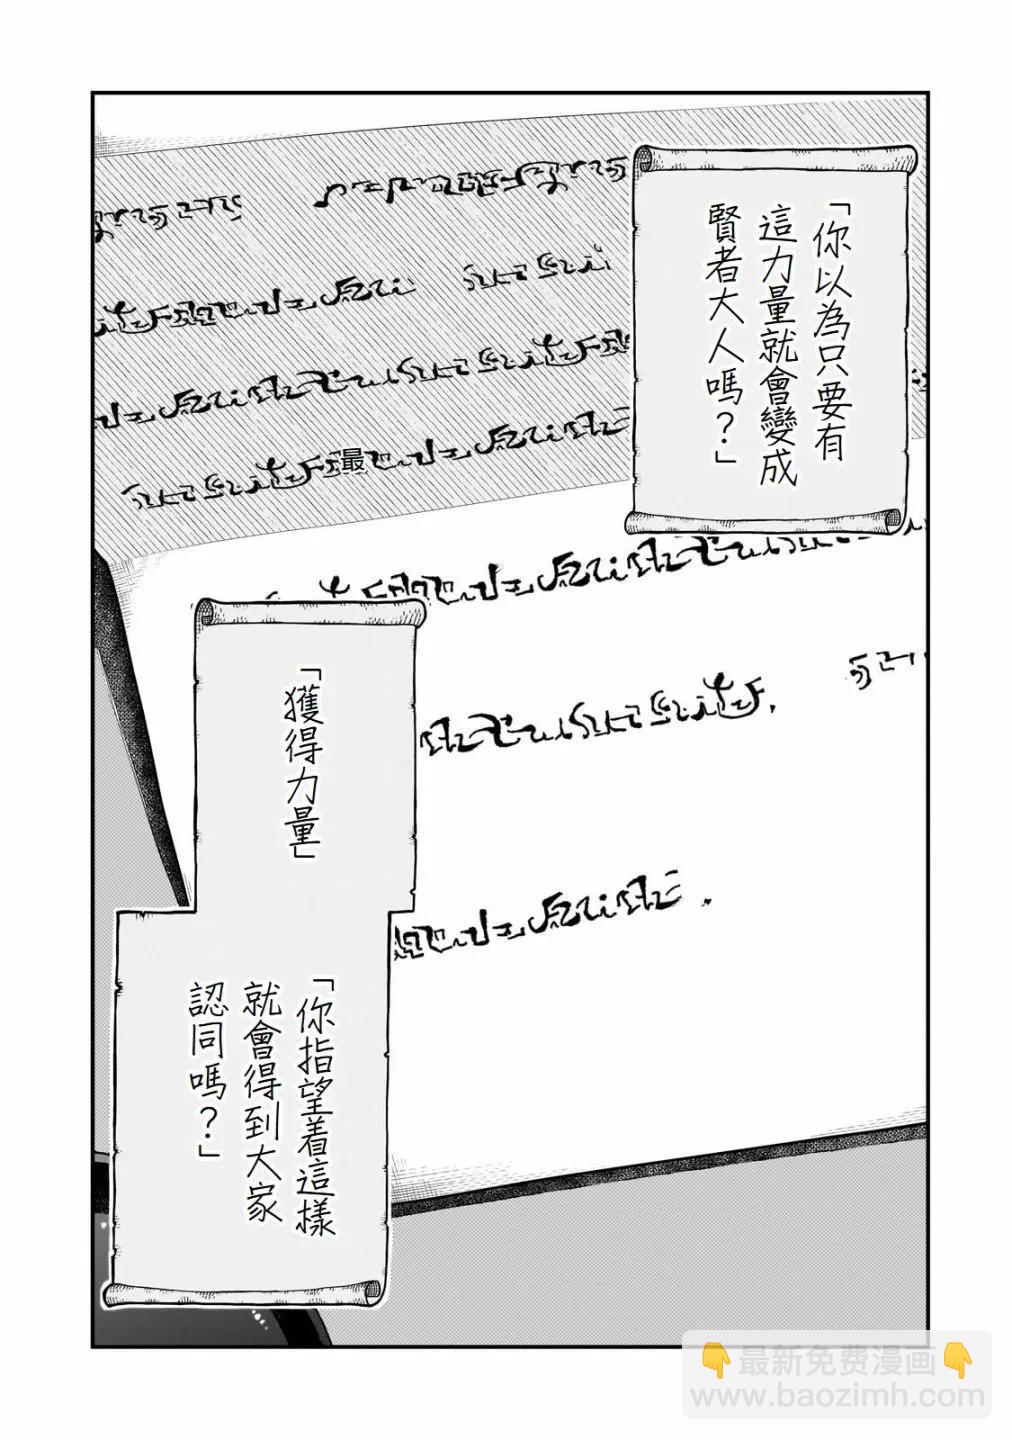 「你以為只要有
這力量就會變成
賢者大人嗎？」
最
「獲得力量」
「你指望着這樣
就會得到大家
認同嗎？」
👇最新免费漫画👇
www.baozimh.com